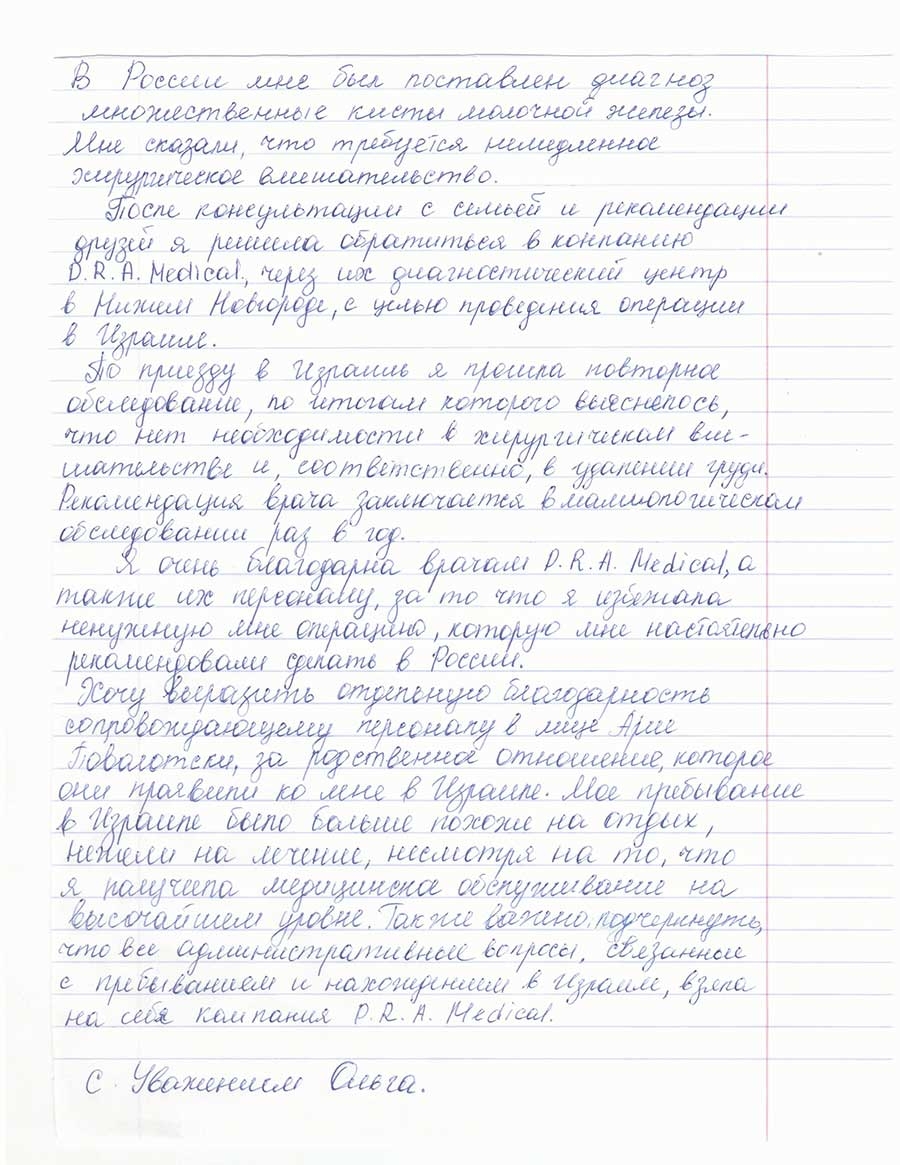 В России мне был поставлен диагноз
множественные кисты молочной железы.
Мне сказали, что требуется немедленное
хирургическое вмешательство.
После консультации с семьей и рекомендации
друзей я решила обратиться в конпанию
D.R.A. Medical, через их диагностический центр
в Нижнем Новгороде, с целью проведения операции
в Израиле.
По приезду в Израиль я прошла повторное
обследование, по итогам которого выяснелось,
что нет необходимости в хирургическом вме-
шательстве и, соответственно, в удалении груди.
Рекомендация врача заключается в маммологическом
обследовании раз в год.
Я очень благодарна врачам D.R.A. Medical, а
также их персоналу, за то что я избежала
ненужную мне операцию, которую мне настоятельно
рекомендовали сделать в России.
Хочу выразить отдельную благодарность
сопровождающему персоналу в лице Арие
Поволотски, за родственное отношение, которое
они праявили ко мне в Израиле. Мое пребывание
в Израиле было больше похоже на отдых,
нежели на лечение, несмотря на то, что
я получила медицинское обслуживание на
высочайшем уровне. Также важно подчеркнуть,
что все административные вопросы, связанные
с пребыванием и нахождением в Израиле, взяла
на себя компания D.R.A. Medical.
С Уважением Ольга.